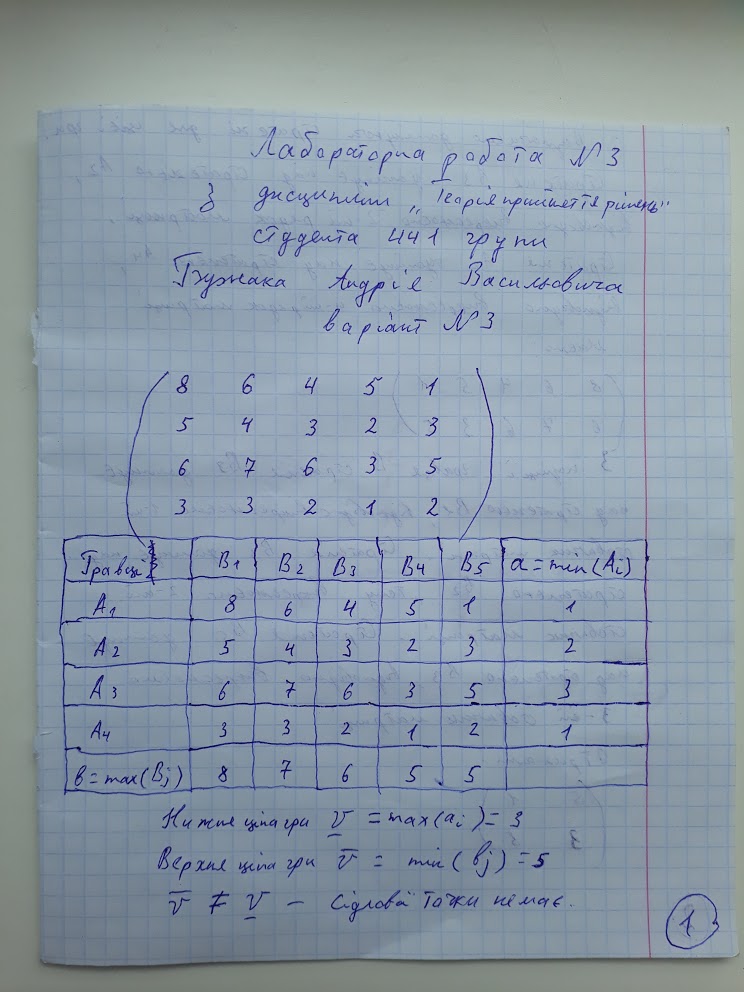 Лабораторна робота №3
З дисципліни „Теорія прийняття рішень"
студента 441 групи
Гужака Андрія Васильовича
варіант №3
8 6 4 5 1
5 4 3 2 3
6 7 6 3 5
3 3 2 1 2
Гравці B1 B2 B3 B4 B5 a = min(Ai)
A1 8 6 4 5 1 1
A2 5 4 3 2 3 2
A3 6 7 6 3 5 3
A4 3 3 2 1 2 1
в = max(Bj) 8 7 6 5 5
Нижня ціна гри v = max(ai) = 3
Верхня ціна гри v̅ = min(bj) = 5
v̅ ≠ v – сідлової точки немає.
1